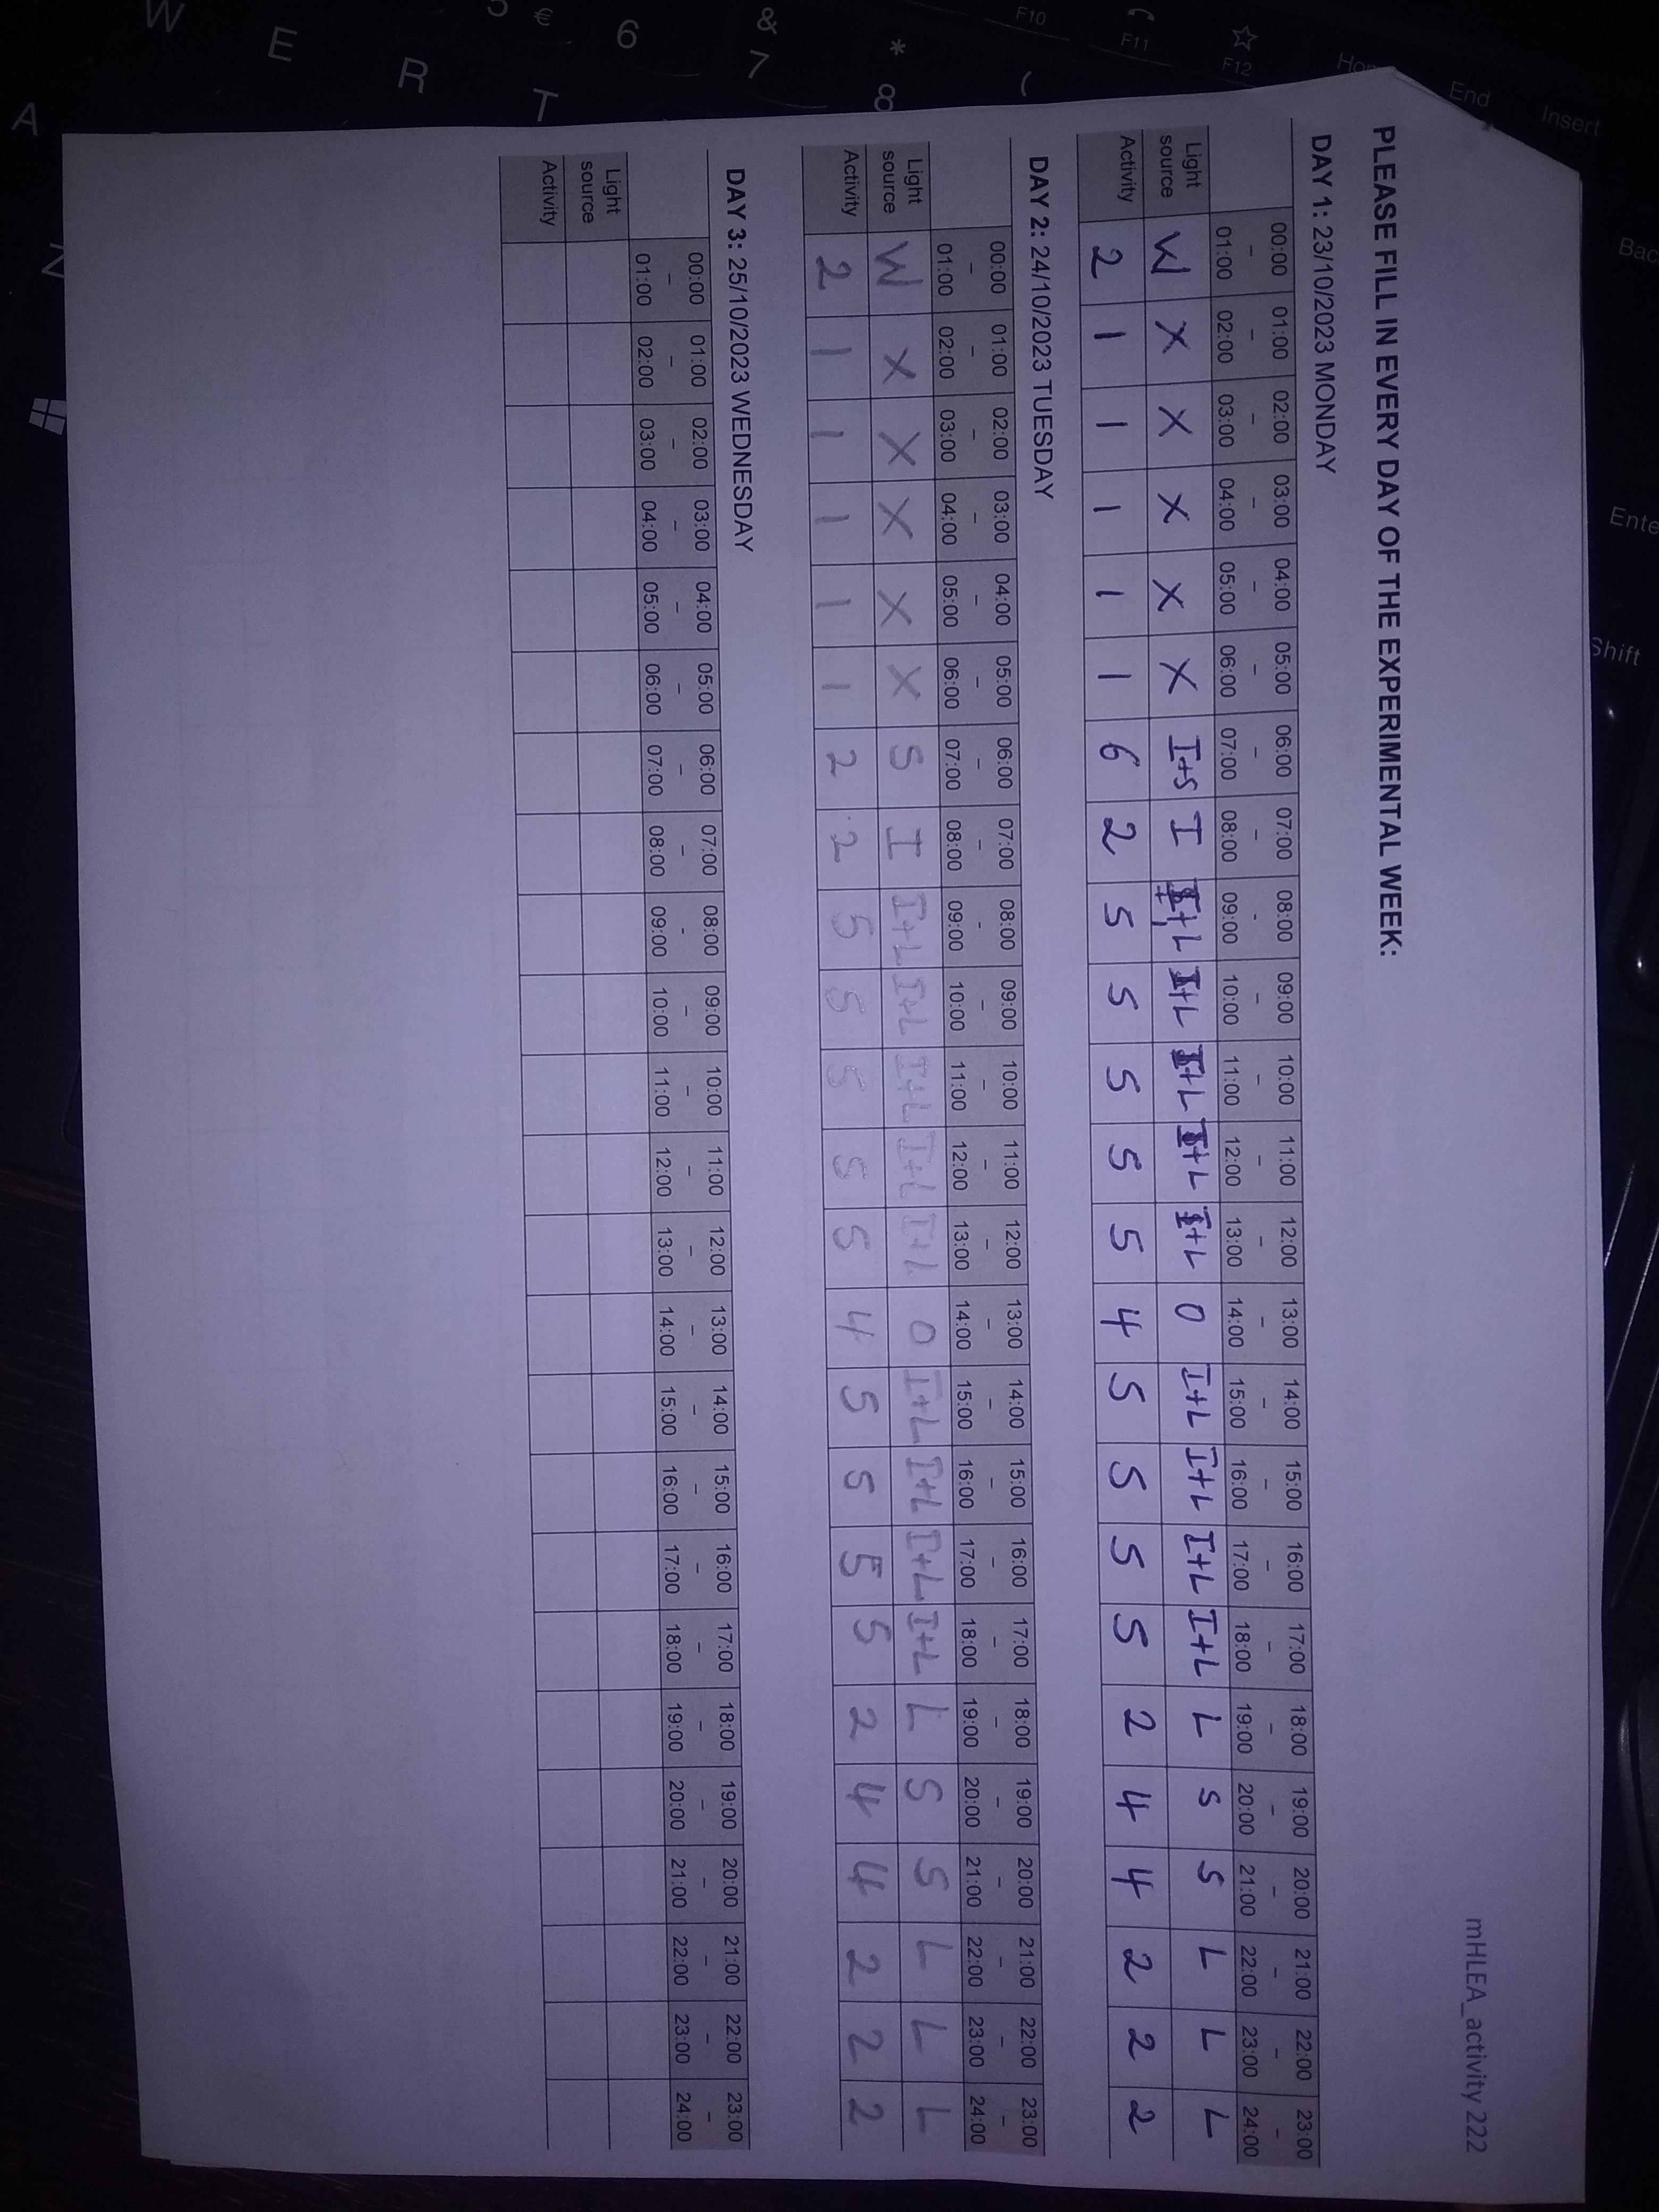 mHLEA_activity 222
PLEASE FILL IN EVERY DAY OF THE EXPERIMENTAL WEEK:
DAY 1: 23/10/2023 MONDAY
00:00 – 01:00 01:00 – 02:00 02:00 – 03:00 03:00 – 04:00 04:00 – 05:00 05:00 – 06:00 06:00 – 07:00 07:00 – 08:00 08:00 – 09:00 09:00 – 10:00 10:00 – 11:00 11:00 – 12:00 12:00 – 13:00 13:00 – 14:00 14:00 – 15:00 15:00 – 16:00 16:00 – 17:00 17:00 – 18:00 18:00 – 19:00 19:00 – 20:00 20:00 – 21:00 21:00 – 22:00 22:00 – 23:00 23:00 – 24:00
Light source W X X X X X I+S I I+L I+L I+L I+L I+L O I+L I+L I+L I+L L S S L L L
Activity 2 1 1 1 1 1 6 2 5 5 5 5 5 4 5 5 5 5 2 4 4 2 2 2
DAY 2: 24/10/2023 TUESDAY
00:00 – 01:00 01:00 – 02:00 02:00 – 03:00 03:00 – 04:00 04:00 – 05:00 05:00 – 06:00 06:00 – 07:00 07:00 – 08:00 08:00 – 09:00 09:00 – 10:00 10:00 – 11:00 11:00 – 12:00 12:00 – 13:00 13:00 – 14:00 14:00 – 15:00 15:00 – 16:00 16:00 – 17:00 17:00 – 18:00 18:00 – 19:00 19:00 – 20:00 20:00 – 21:00 21:00 – 22:00 22:00 – 23:00 23:00 – 24:00
Light source W X X X X X S I I+L I+L I+L I+L I+L O I+L I+L I+L I+L L S S L L L
Activity 2 1 1 1 1 1 2 2 5 5 5 5 5 4 5 5 5 5 2 4 4 2 2 2
DAY 3: 25/10/2023 WEDNESDAY
00:00 – 01:00 01:00 – 02:00 02:00 – 03:00 03:00 – 04:00 04:00 – 05:00 05:00 – 06:00 06:00 – 07:00 07:00 – 08:00 08:00 – 09:00 09:00 – 10:00 10:00 – 11:00 11:00 – 12:00 12:00 – 13:00 13:00 – 14:00 14:00 – 15:00 15:00 – 16:00 16:00 – 17:00 17:00 – 18:00 18:00 – 19:00 19:00 – 20:00 20:00 – 21:00 21:00 – 22:00 22:00 – 23:00 23:00 – 24:00
Light source
Activity
W E R T
A
Z
€ 6 & 7 * 8 (
F10 F11 F12
End Insert
Shift